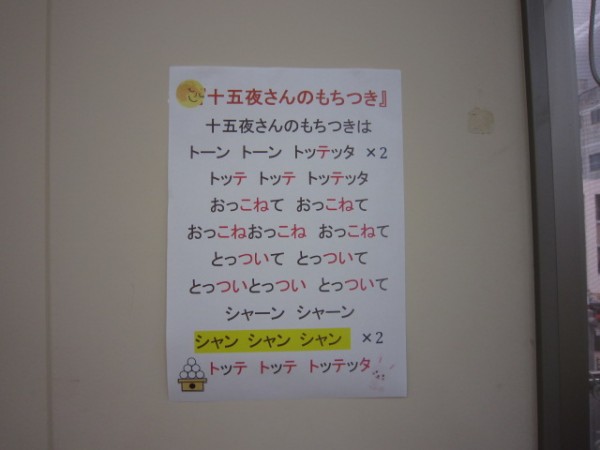 『十五夜さんのもちつき』
十五夜さんのもちつきは
トーン トーン トッテッタ ×2
トッテ トッテ トッテッタ
おっこねて おっこねて
おっこねおっこね おっこねて
とっついて とっついて
とっついとっつい とっついて
シャーン シャーン
シャン シャン シャン ×2
トッテ トッテ トッテッタ